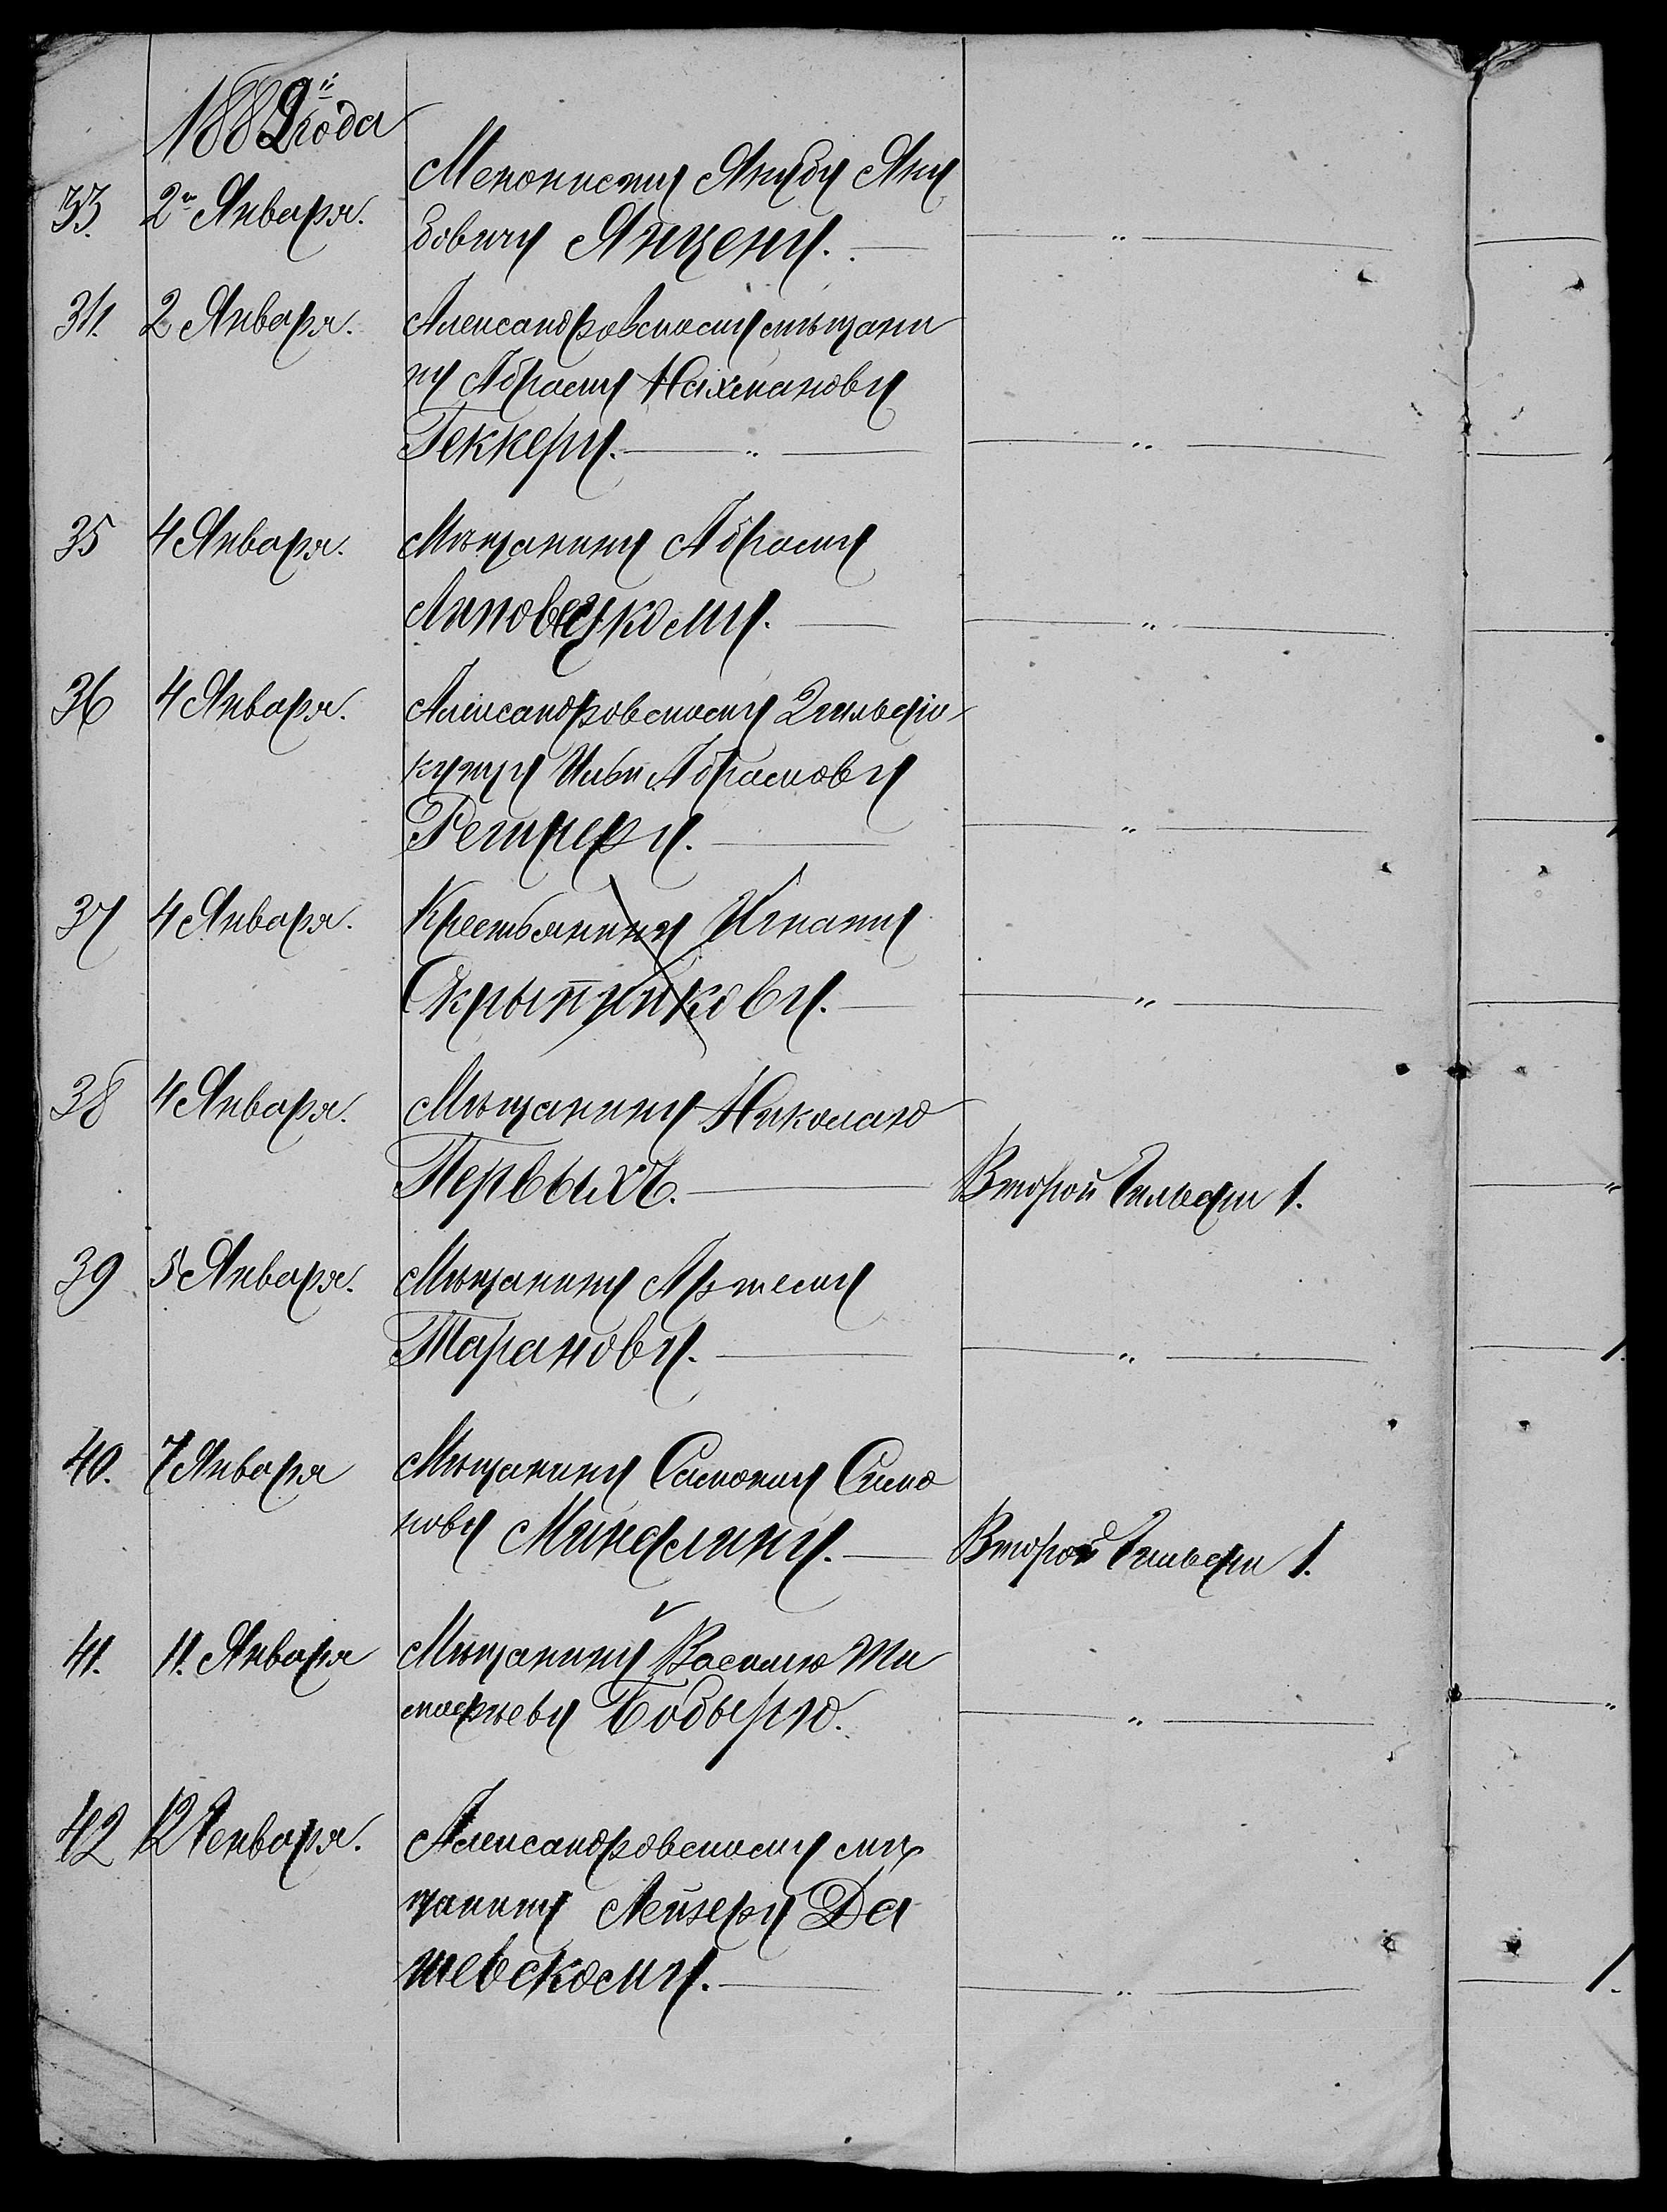 1882 года
33. 2го Января. Менонисту Якубу Яку
бовичу Янцену. "
34. 2 Января. Александровскому мѣщани
ну Абраму Нахманову
Геккеру. " "
35 4 Января. Мѣщанину Абраму
Липовецкому. "
36 4 Января. Александровскому 2 гильдіи
купцу Ильи Абрамову
Ретнеру. "
37 4 Января. Крестьянину Игнату
Скрыпникову. "
38 4 Января. Мѣщанину Николаю
Первыхъ. Второй Гильдіи 1. "
39 5 Января. Мѣщанину Артему
Таранову. " 1.
40. 7 Января Мѣщанину Самону Симо
нову Миндлину. Второй Гильдіи 1.
41. 11. Января Мѣщанину Василію Ти
мофѣеву Бодырю. " "
42 12 Генваря. Александровскому мѣ
щанину Лейзеру Да
шевскому. " 1.